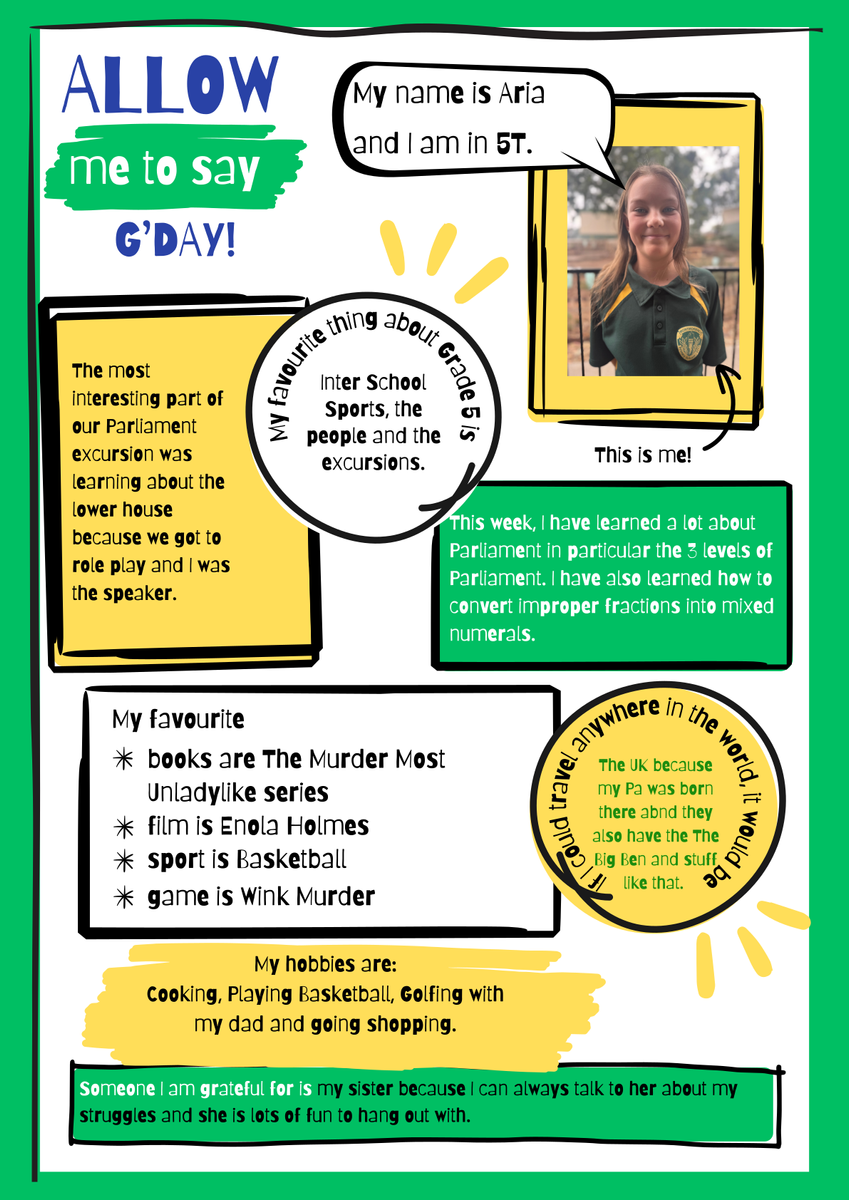 ALLOW
me to say
G'DAY!
My name is Aria
and I am in 5T.
This is me!
The most
interesting part of
our Parliament
excursion was
learning about the
lower house
because we got to
role play and I was
the speaker.
My favourite thing about Grade 5 is
Inter School
Sports, the
people and the
excursions.
This week, I have learned a lot about
Parliament in particular the 3 levels of
Parliament. I have also learned how to
convert improper fractions into mixed
numerals.
My favourite
books are The Murder Most
Unladylike series
film is Enola Holmes
sport is Basketball
game is Wink Murder
If I could travel anywhere in the world, it would be
The UK because
my Pa was born
there abnd they
also have the The
Big Ben and stuff
like that.
My hobbies are:
Cooking, Playing Basketball, Golfing with
my dad and going shopping.
Someone I am grateful for is my sister because I can always talk to her about my
struggles and she is lots of fun to hang out with.